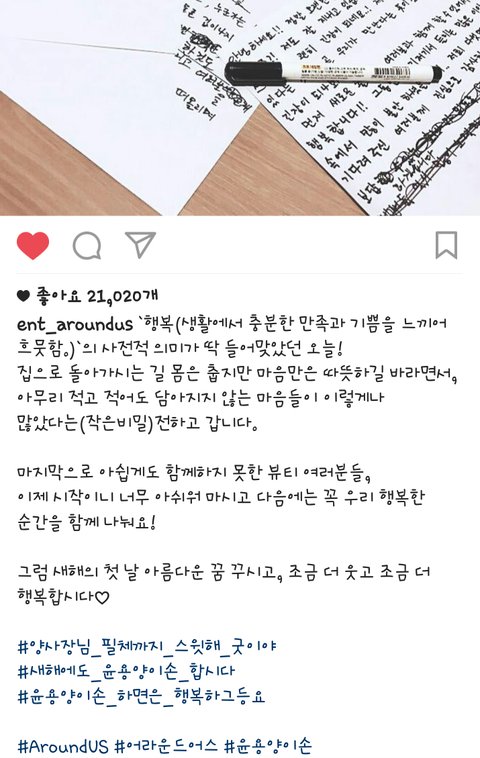 행복 합니다!!
기다려 주신 여러분께
좋아요 21,020개
ent_aroundus `행복(생활에서 충분한 만족과 기쁨을 느끼어
흐뭇함.)`의 사전적 의미가 딱 들어맞았던 오늘!
집으로 돌아가시는 길 몸은 춥지만 마음만은 따뜻하길 바라면서,
아무리 적고 적어도 담아지지 않는 마음들이 이렇게나
많았다는(작은비밀)전하고 갑니다.
마지막으로 아쉽게도 함께하지 못한 뷰티 여러분들,
이제 시작이니 너무 아쉬워 마시고 다음에는 꼭 우리 행복한
순간을 함께 나눠요!
그럼 새해의 첫 날 아름다운 꿈 꾸시고, 조금 더 웃고 조금 더
행복합시다♡
#양사장님_필체까지_스윗해_굿이야
#새해에도_윤용양이손_합시다
#윤용양이손_하면은_행복하그등요
#AroundUS #어라운드어스 #윤용양이손